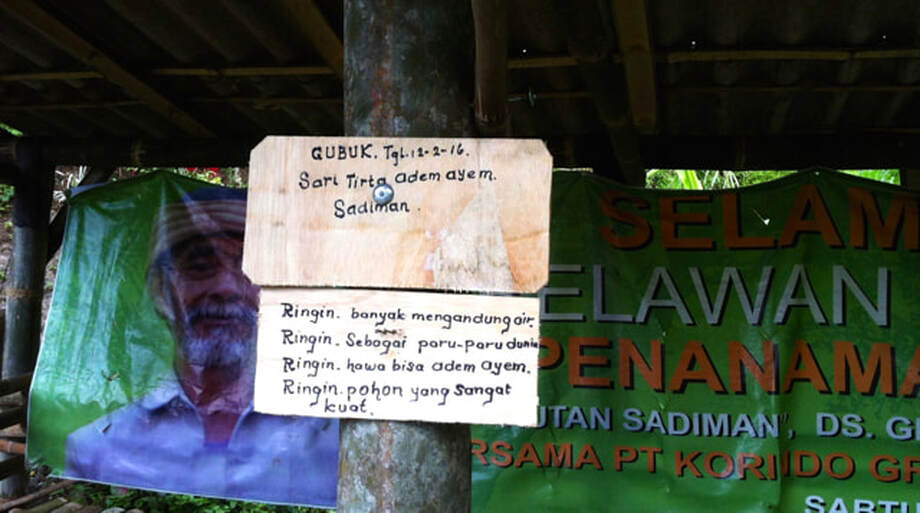 GUBUK. Tgl. 12-2-16.
Sari Tirta adem ayem.
Sadiman.
Ringin. banyak mengandung air.
Ringin. Sebagai paru-paru dunia
Ringin. hawa bisa adem ayem.
Ringin. pohon yang sangat
kuat.
SELAM
ELAWAN
PENANAMA
UTAN SADIMAN", DS. G
RSAMA PT KORINDO GR
SABTU